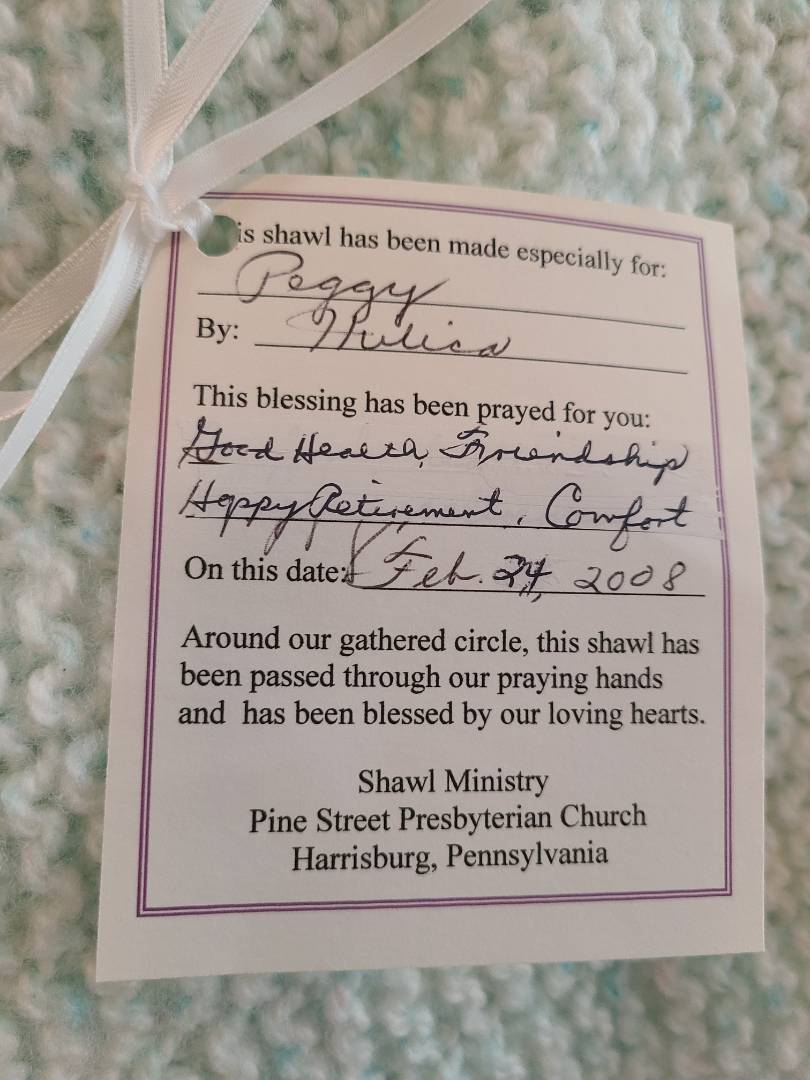 is shawl has been made especially for:
Peggy
By:
This blessing has been prayed for you:
Good Health, Friendship
Happy Retirement, Comfort
On this date: Feb. 24, 2008
Around our gathered circle, this shawl has
been passed through our praying hands
and has been blessed by our loving hearts.
Shawl Ministry
Pine Street Presbyterian Church
Harrisburg, Pennsylvania